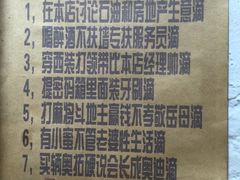 1，在本店讨论石油和房地产生意滴
2，喝啤酒不扶墙专扶服务员滴
3，穿西装打领带比本店经理帅滴
4，提密码箱里面装牙刷滴
5，打麻将斗地主赢钱不孝敬岳母滴
6，有小蜜不管老婆性生活滴
7，买辆奥拓硬说会长成奥迪滴